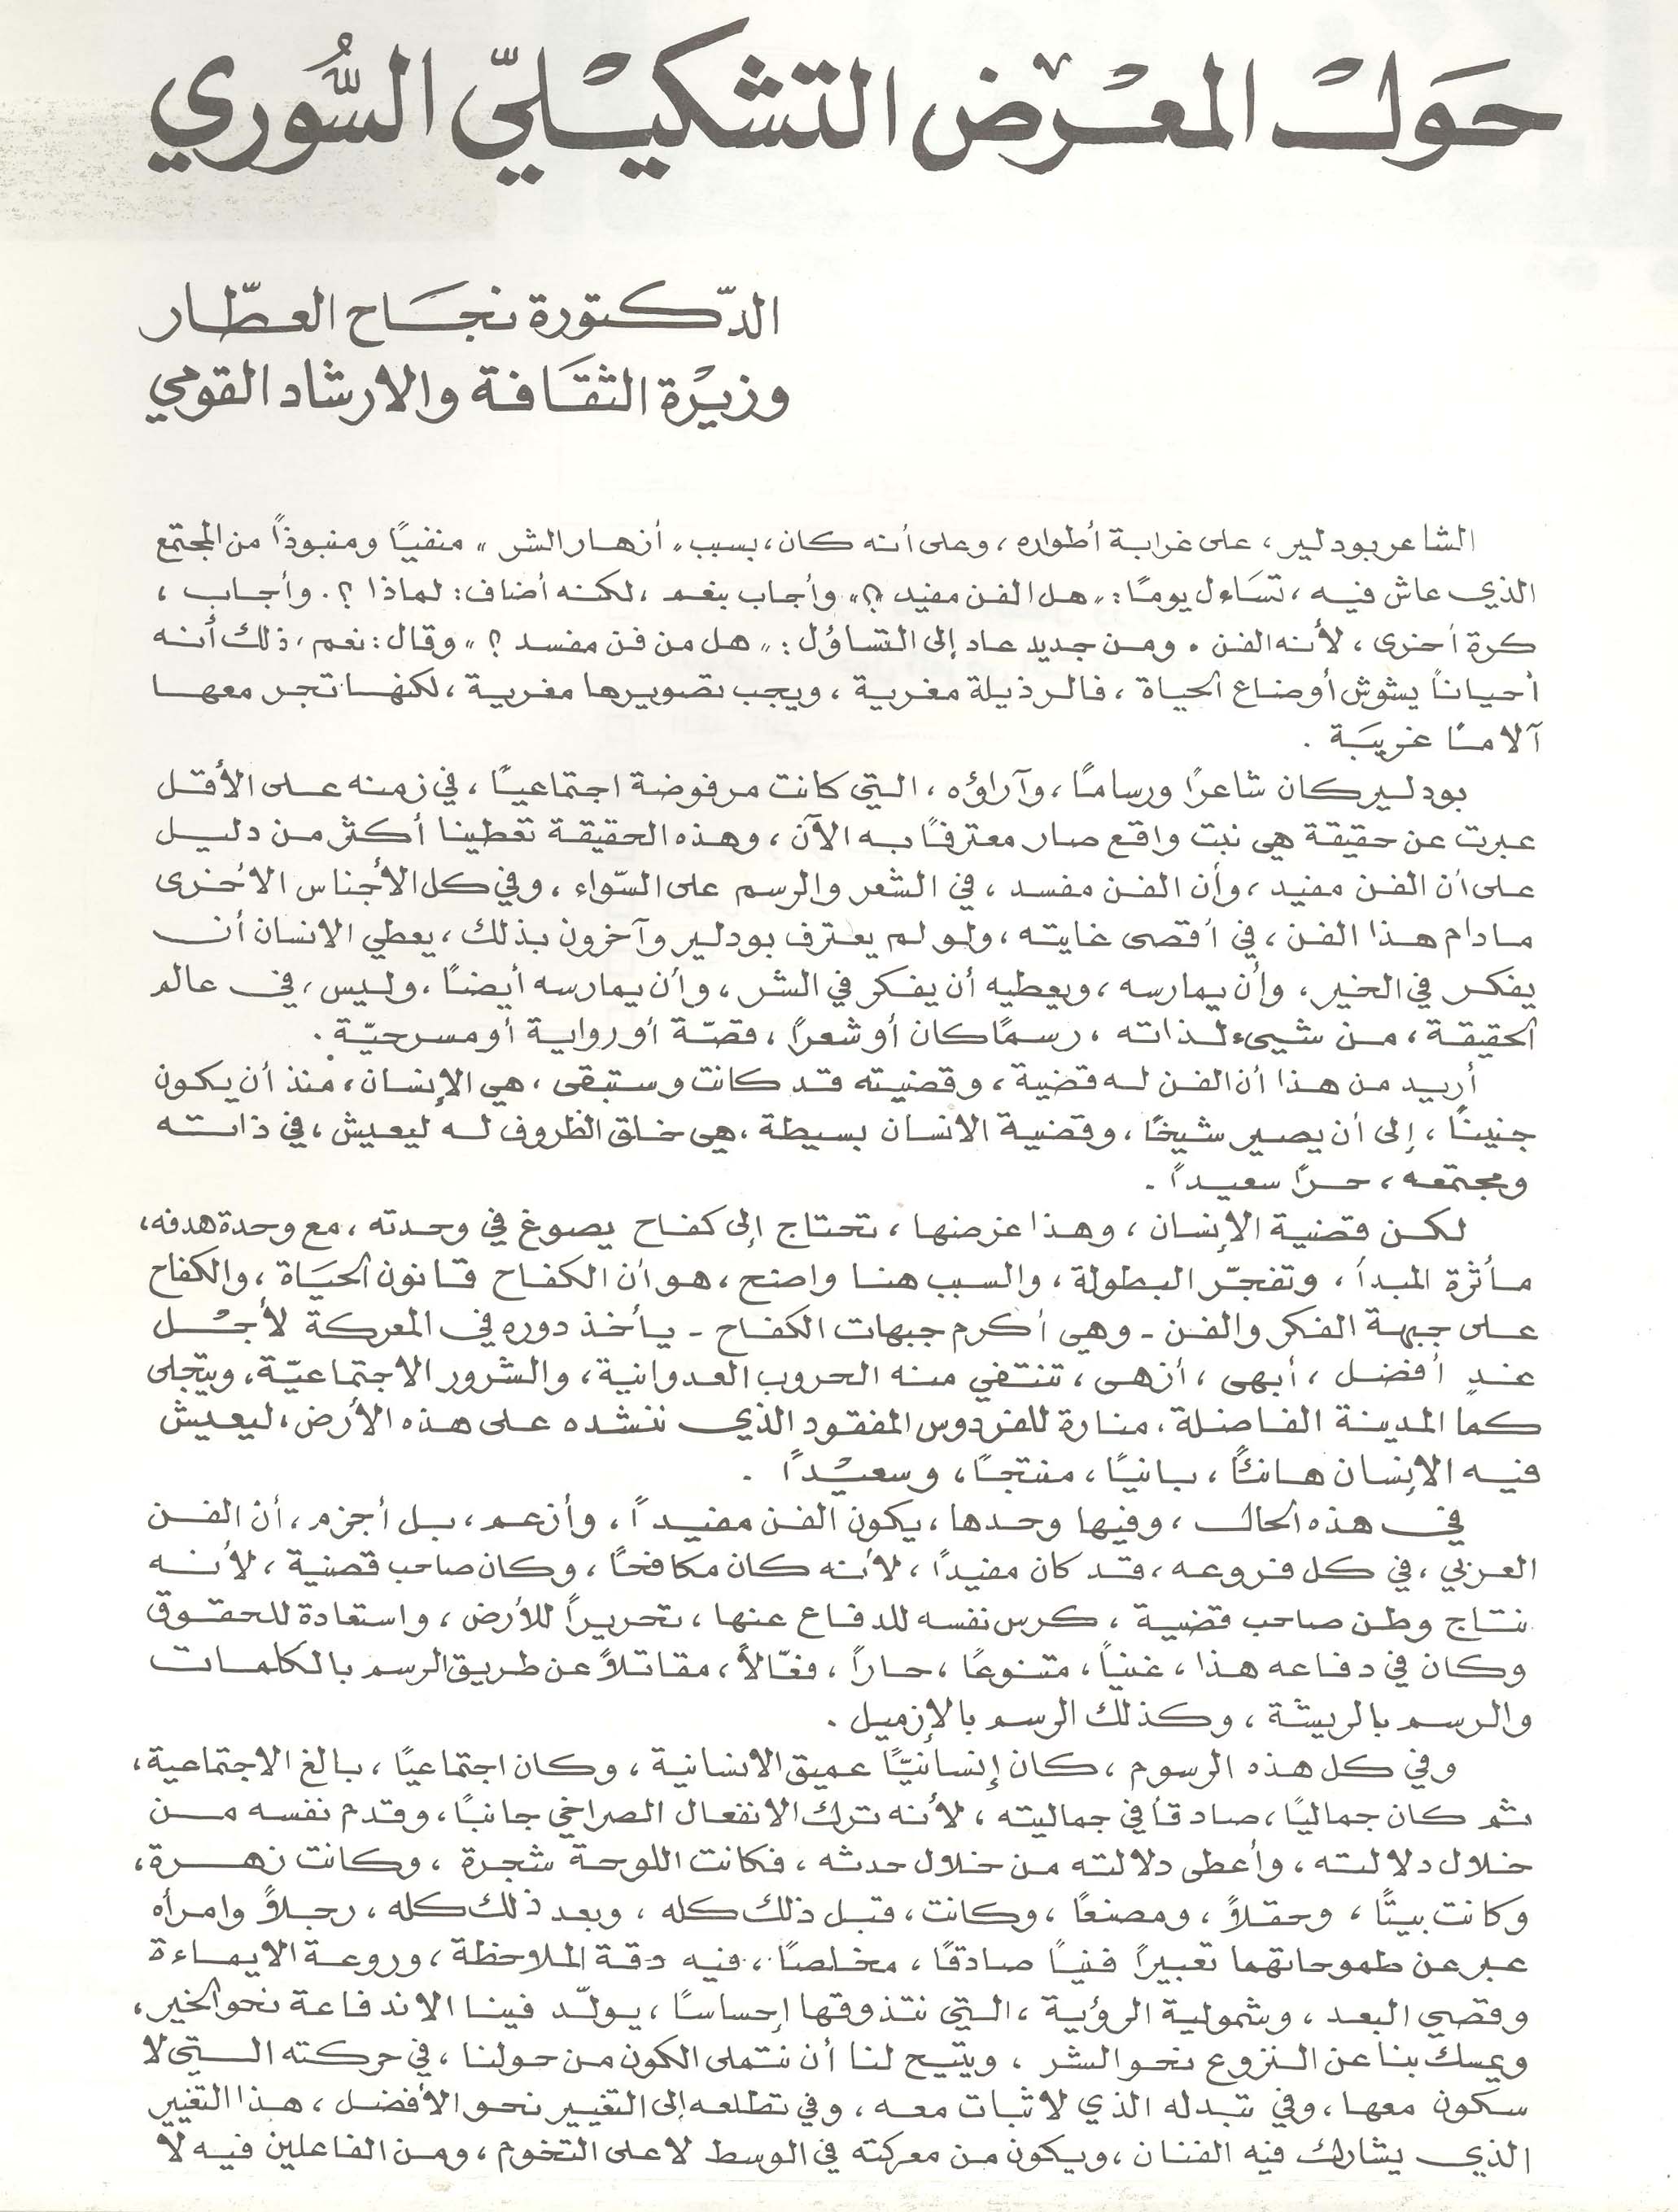 حَول المعْرض التشكيْليّ السُّوري
الدّكتورة نجَاح العطّار
وزيْرة الثقَافة والارشاد القومي
الشاعر بودلير، على غرابة أطواره، وعلى أنه كان، بسبب «أزهار الشر» منفيًا ومنبوذاً من المجتمع
الذي عاش فيه، تسَاءل يومًا: «هل الفن مفيد؟» وأجاب بنعم، لكنه أضاف: لماذا؟. وأجاب،
كرة أخرى، لأنه الفن. ومن جديد عاد إلى التساؤل: «هل من فن مفسد؟» وقال: نعم، ذلك أنه
أحياناً يشوش أوضاع الحياة، فالرذيلة مغرية، ويجب تصويرها مغرية، لكنها تجر معها
آلامًا غريبَة.
بودلير كان شاعرًا ورسامًا، وآراؤه، التي كانت مرفوضة اجتماعيًا، في زمنه على الأقل
عبرت عن حقيقة هي نبت واقع صار معترفًا به الآن، وهذه الحقيقة تعطينا أكثر من دليل
على أن الفن مفيد، وأن الفن مفسد، في الشعر والرسم على السّواء، وفي كل الأجناس الأخرى
مادام هذا الفن، في أقصى غايته، ولو لم يعترف بودلير وآخرون بذلك، يعطي الانسان أن
يفكر في الخير، وأن يمارسه، ويعطيه أن يفكر في الشر، وأن يمارسه أيضاً، وليس، في عالم
الحقيقة، من شيء لذاته، رسمًا كان أو شعراً، قصّة أو رواية أو مسرحيّة.
أريد من هذا أن الفن له قضية، وقضيته قد كانت وستبقى، هي الإنسان، منذ أن يكون
جنيناً، إلى أن يصير شيخًا، وقضية الانسان بسيطة، هي خلق الظروف له ليعيش، في ذاته
ومجتمعه، حرًا سعيداً.
لكن قضية الإنسان، وهذا غرضها، تحتاج إلى كفاح يصوغ في وحدته، مع وحدة هدفه،
مأثرة المبدأ، وتفجّر البطولة، والسبب هنا واضح، هو أن الكفاح قانون الحيَاة، والكفاح
على جبهة الفكر والفن - وهي أكرم جبهات الكفاح - يأخذ دوره في المعركة لأجْل
غدٍ أفضل، أبهى، أزهى، تنتفي منه الحروب العدوانية، والشرور الاجتماعيّة، ويتجلى
كما المدينة الفاضلة، منارة للفردوس المفقود الذي ننشده على هذه الأرض، ليعيش
فيه الإنسان هانئًا، بانيًا، منتجًا، وسعيْداً.
في هذه الحال، وفيها وحدها، يكون الفن مفيداً، وأزعم، بل أجزم، أن الفن
العربي، في كل فروعه، قد كان مفيداً، لأنه كان مكافحًا، وكان صاحب قضية، لأنه
نتاج وطن صاحب قضية، كرس نفسه للدفاع عنها، تحريراً للأرض، واستعادة للحقوق
وكان في دفاعه هذا، غنياً، متنوعًا، حاراً، فعّالاً، مقاتلاً عن طريق الرسم بالكلمات
والرسم بالريشة، وكذلك الرسم بالإزميل.
وفي كل هذه الرسوم، كان إنسانيًّا عميق الانسانية، وكان اجتماعيًا، بالغ الاجتماعية،
ثم كان جماليًا، صادقاً في جماليته، لأنه ترك الانفعال الصراخي جانبًا، وقدم نفسه من
خلال دلالته، وأعطى دلالته من خلال حدثه، فكانت اللوحة شجرة، وكانت زهرة،
وكانت بيتًا، وحقلاً، ومصنعًا، وكانت، قبل ذلك كله، وبعد ذلك كله، رجلاً وامرأه
عبر عن طموحاتهما تعبيراً فنياً صادقًا، مخلصًا، فيه دقة الملاحظة، وروعة الايماءة
وقصي البعد، وشمولية الرؤية، التي نتذوقها إحساسًا، يولّد فينا الاندفاعة نحو الخير،
ويمسك بنا عن النزوع نحو الشر، ويتيح لنا أن نتملى الكون من حولنا، في حركته التي لا
سكون معها، وفي تبدله الذي لا ثبات معه، وفي تطلعه إلى التغيير نحو الأفضل، هذا التغيير
الذي يشارك فيه الفنان، ويكون من معركته في الوسط لا على التخوم، ومن الفاعلين فيه لا